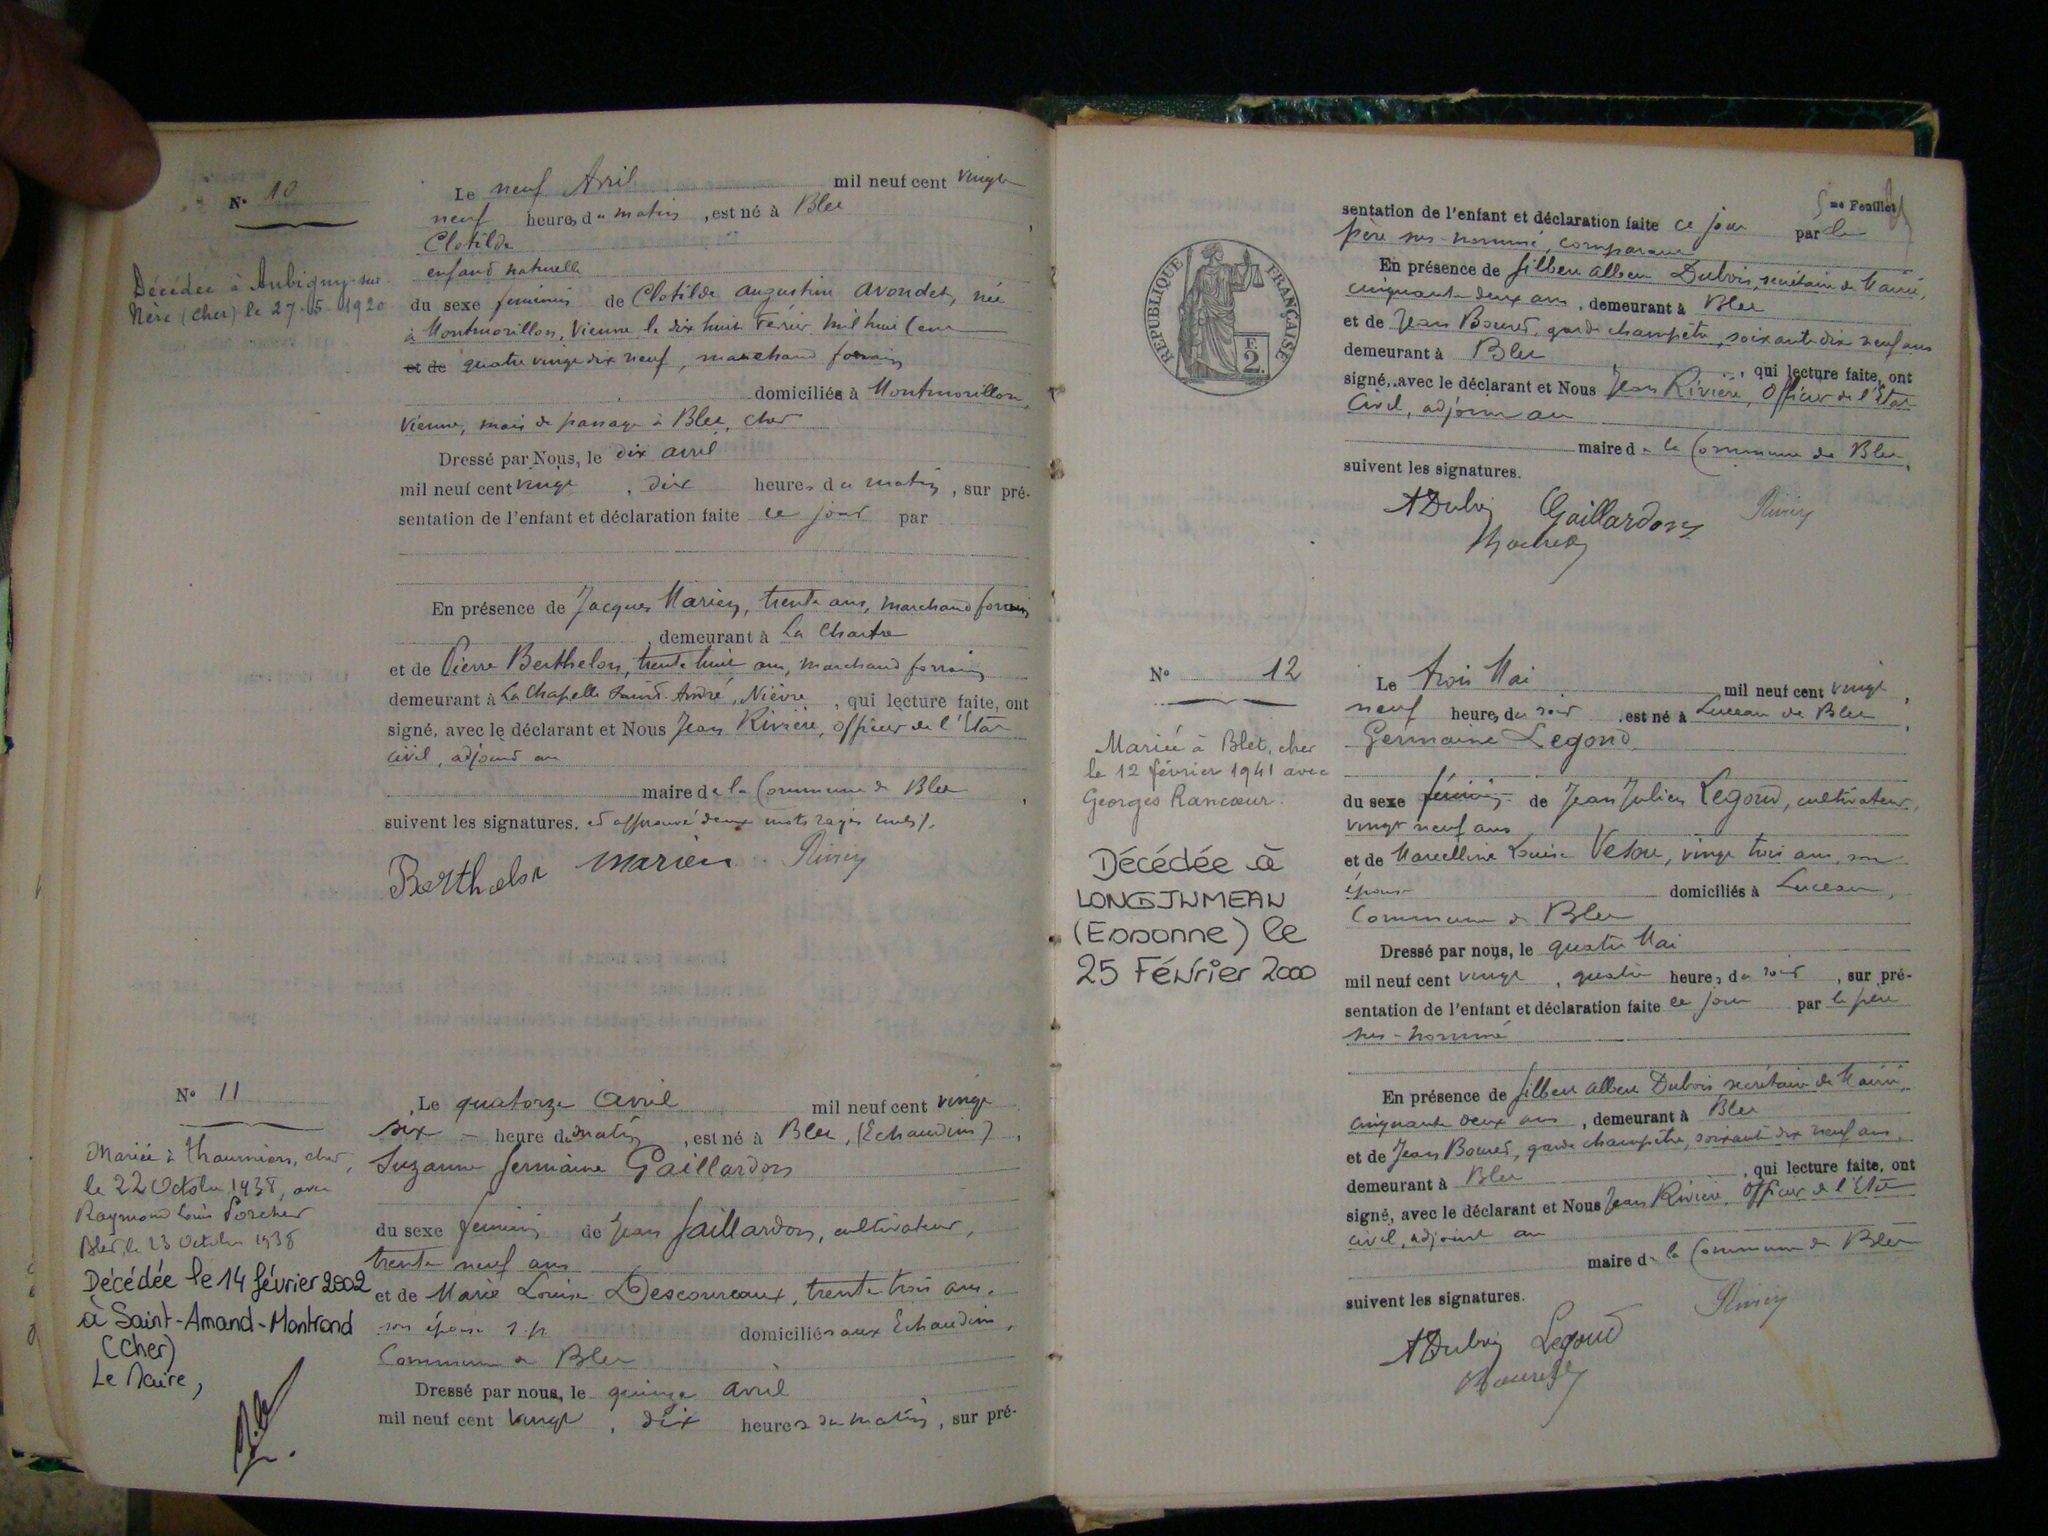 N° 10
Décédée à Aubigny-sur-
Nère (Cher) le 27-05-1920
Le neuf Avril mil neuf cent vingt
neuf heures du matin, est né à Blet
Clotilde
enfant naturelle
du sexe féminin de Clotilde Augustine Avondet, née
à Montmorillon, Vienne le dix huit Février mil huit cent
et de quatre vingt dix neuf, marchand forain
domiciliée à Montmorillon,
Vienne, mais de passage à Blet, Cher
Dressé par Nous, le dix avril
mil neuf cent vingt, dix heures du matin, sur pré-
sentation de l'enfant et déclaration faite ce jour par
En présence de Jacques Marien, trente ans, marchand forain
, demeurant à La Chartre
et de Pierre Berthelon, trente huit ans, marchand forrain
demeurant à La Chapelle Saint-André, Nièvre, qui lecture faite, ont
signé, avec le déclarant et Nous Jean Rivière, Officier de l'Etat
civil, adjoint au
maire de la Commune de Blet
suivent les signatures. et approuvé deux mots rayés nuls.
Berthelon Marien Rivière
N° 11
Mariée à Thaumiers, cher,
le 22 Octobre 1938, avec
Raymond Louis Porcher
Blet, le 23 Octobre 1938
Décédée le 14 février 2002
à Saint-Amand-Montrond
(Cher)
Le Maire,
Le quatorze Avril mil neuf cent vingt
six heure du matin, est né à Blet, (Echaudins)
Suzanne Germaine Gaillardon
du sexe féminin de Jean Gaillardon, cultivateur,
trente neuf ans
et de Marie Louise Descoureaux, trente trois ans,
son épouse s.p. domiciliés aux Echaudins,
Commune de Blet
Dressé par nous, le quinze avril
mil neuf cent vingt, dix heures du matin, sur pré-
5me Feuillet
sentation de l'enfant et déclaration faite ce jour par le
père sus-nommé, comparant
En présence de Gilbert Albert Dubois, secrétaire de Mairie,
cinquante deux ans, demeurant à Blet
et de Jean Bouret, garde champêtre, soixante dix neuf ans
demeurant à Blet, qui lecture faite, ont
signé, avec le déclarant et Nous Jean Rivière, Officier de l'Etat
Civil, adjoint au
maire de la Commune de Blet,
suivent les signatures.
ADubois Gaillardon Rivière
Bouret
RÉPUBLIQUE FRANÇAISE
F.
2.
N° 12
Mariée à Blet, cher
le 12 février 1941 avec
Georges Rancœur.
Décédée à
LONGJUMEAU
(Essonne) le
25 Février 2000
Le trois Mai mil neuf cent vingt,
neuf heures du soir, est né à Luceau de Blet,
Germaine Legoud
du sexe féminin de Jean Julien Legoud, cultivateur,
vingt neuf ans
et de Marcelline Louise Vesou, vingt trois ans, son
épouse domiciliés à Luceau,
Commune de Blet
Dressé par nous, le quatre Mai
mil neuf cent vingt, quatre heures du soir, sur pré-
sentation de l'enfant et déclaration faite ce jour par le père
sus-nommé
En présence de Gilbert Albert Dubois secrétaire de Mairie,
cinquante deux ans, demeurant à Blet
et de Jean Bouret, garde champêtre, soixante dix neuf ans,
demeurant à Blet, qui lecture faite, ont
signé, avec le déclarant et Nous Jean Rivière, Officier de l'Etat
civil, adjoint au
maire de la Commune de Blet
suivent les signatures.
ADubois Legoud Rivière
Bouret